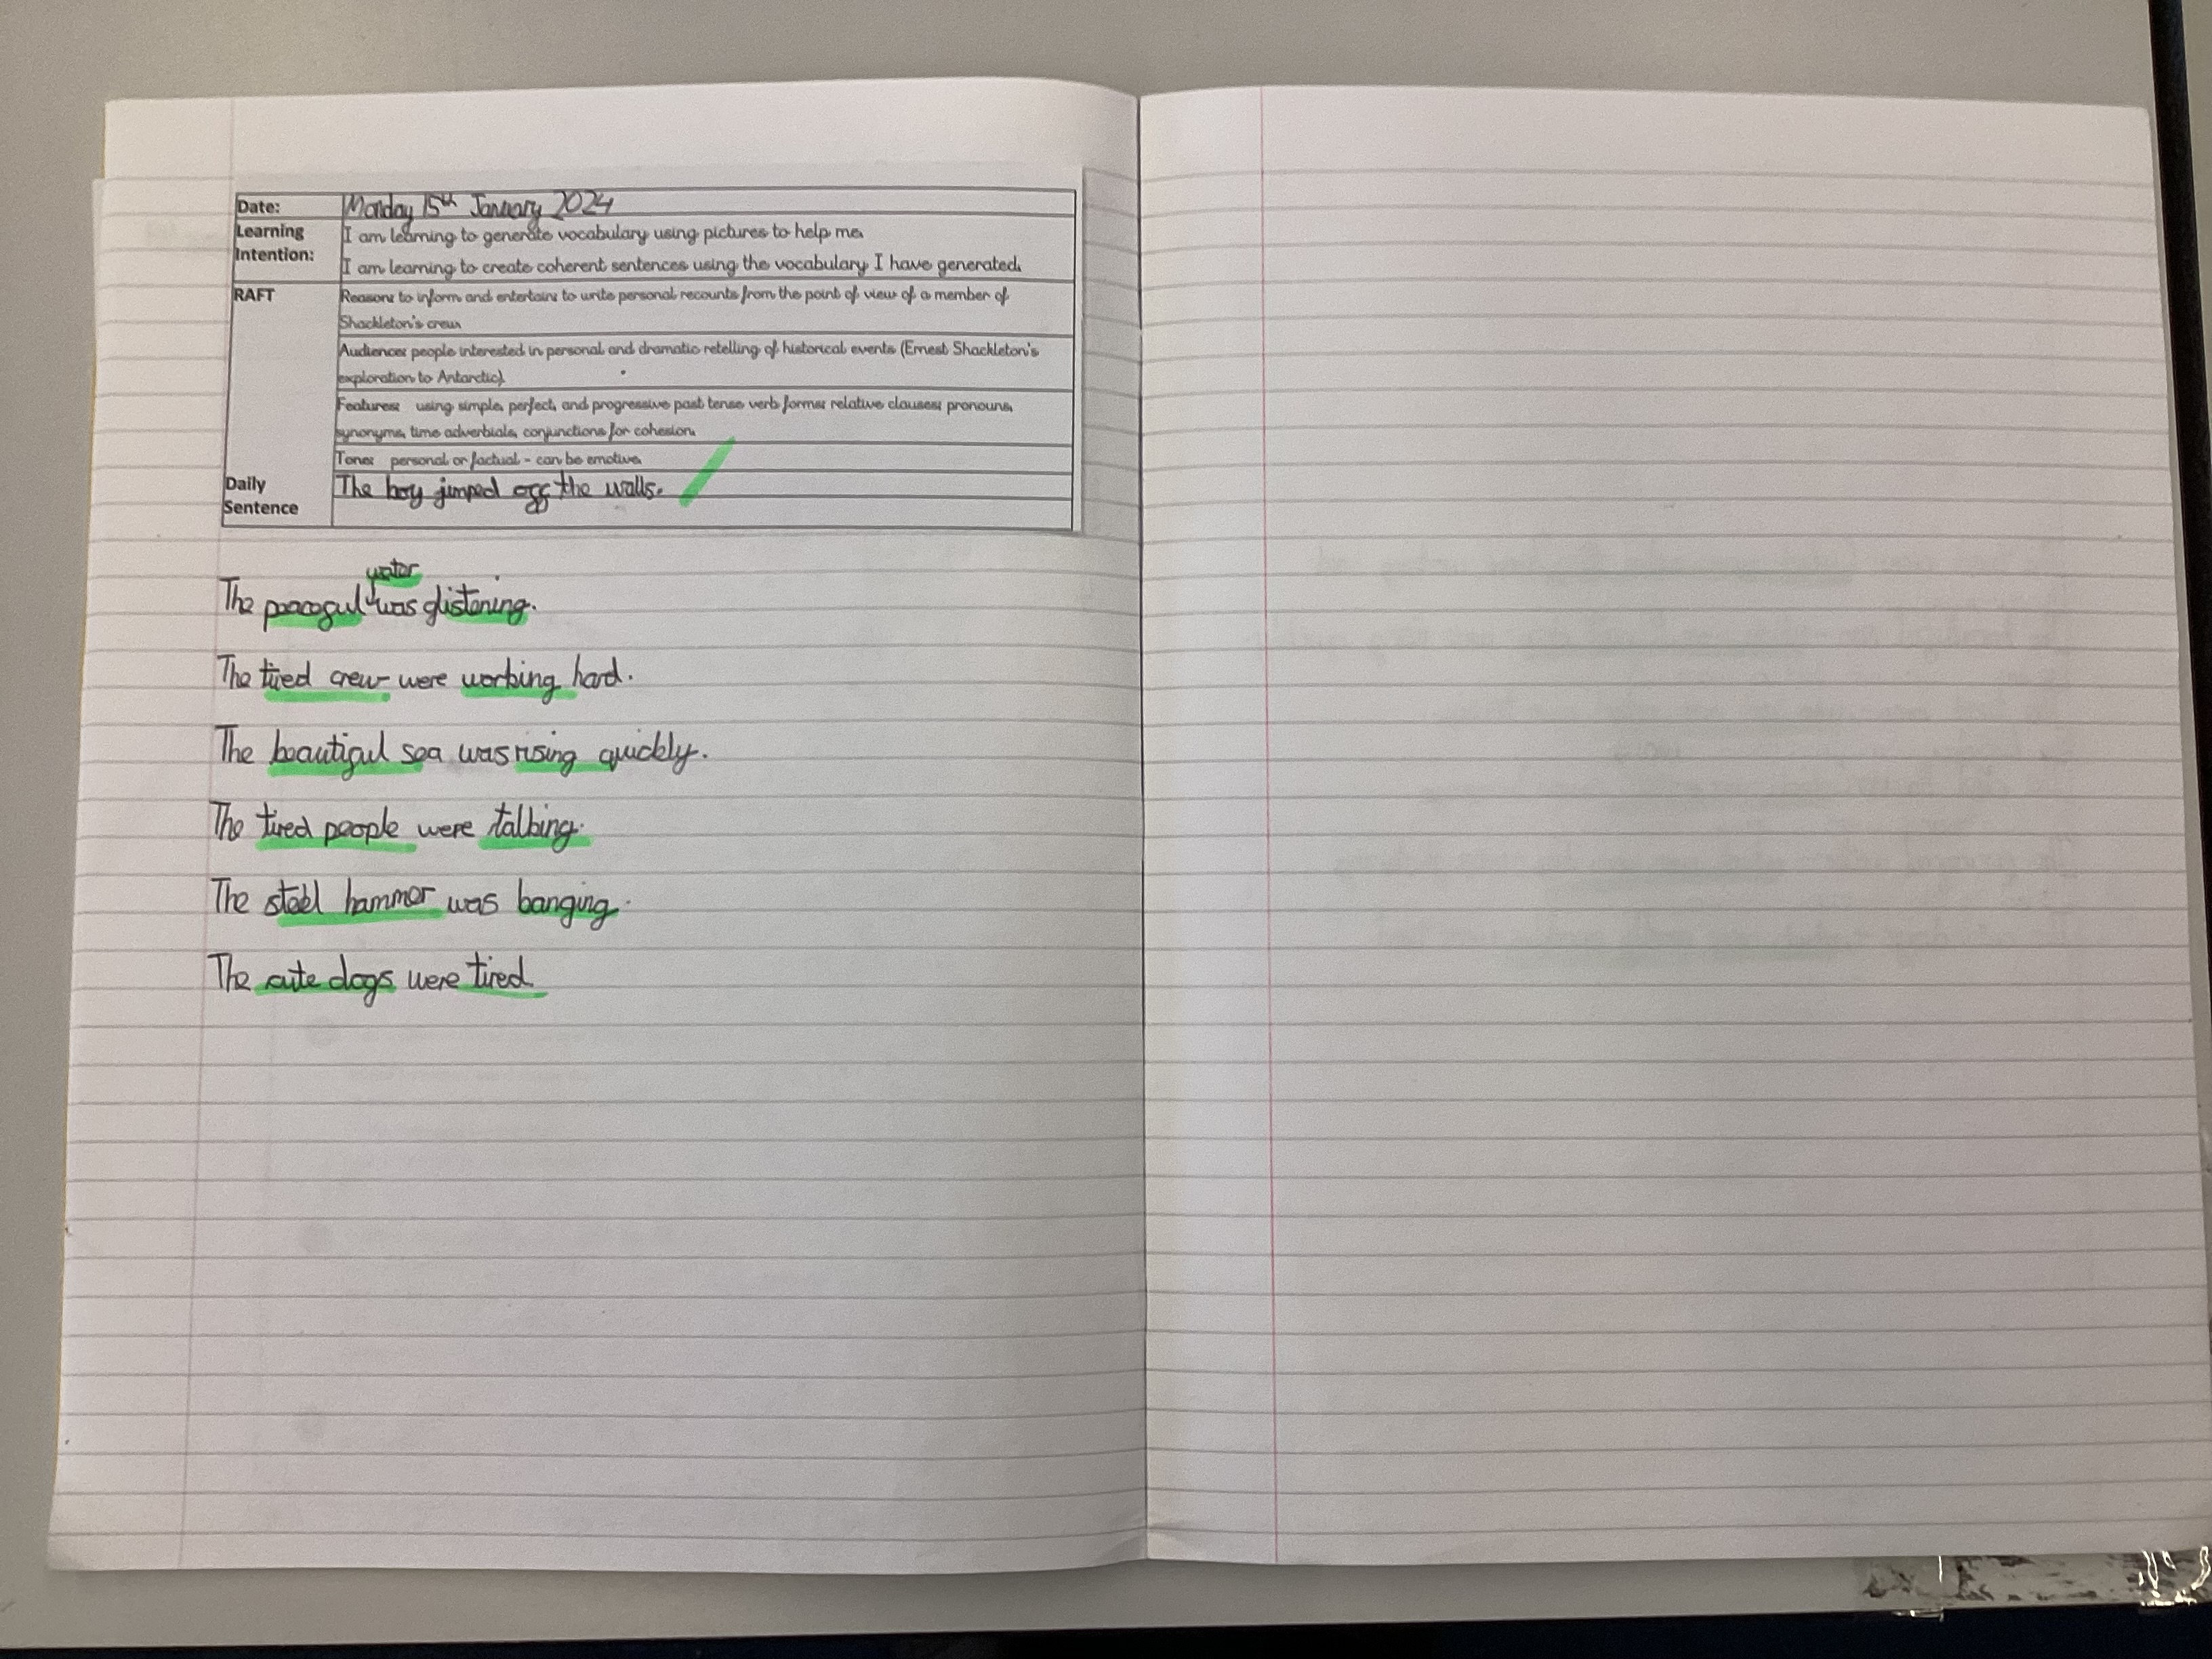 Date: Monday 15th January 2024
Learning Intention: I am learning to generate vocabulary using pictures to help me.
I am learning to create coherent sentences using the vocabulary I have generated.
RAFT Reason: to inform and entertain: to write personal recounts from the point of view of a member of
Shackleton's crew.
Audience: people interested in personal and dramatic retelling of historical events (Ernest Shackleton's
exploration to Antarctic).
Features: using simple, perfect, and progressive past tense verb forms: relative clauses: pronouns,
synonyms, time adverbials, conjunctions for cohesion.
Tone: personal or factual - can be emotive.
Daily Sentence The boy jumped off the walls.
The peaceful water was glistening.
The tired crew were working hard.
The beautiful sea was rising quickly.
The tired people were talking.
The steel hammer was banging.
The cute dogs were tired.